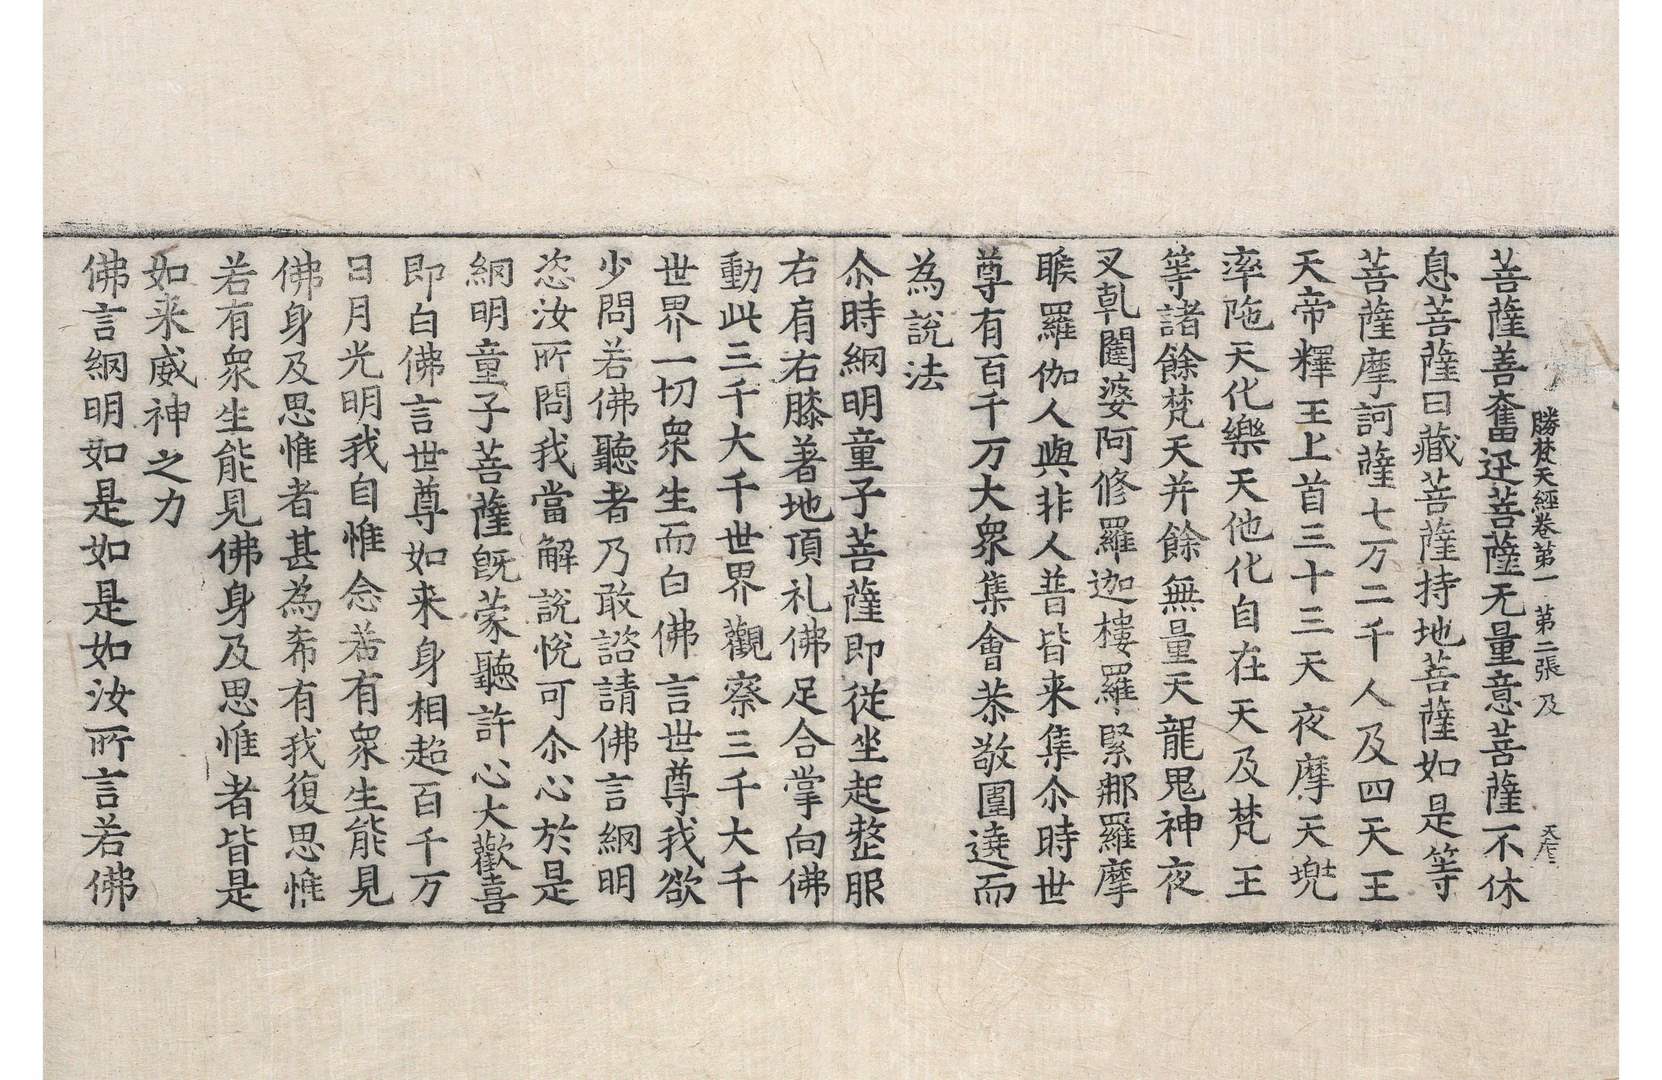 勝梵天經卷第一　第二張　及
菩薩善奮迅菩薩无量意菩薩不休
息菩薩日藏菩薩持地菩薩如是等
菩薩摩訶薩七万二千人及四天王
天帝釋王上首三十三天夜摩天兜
率陁天化樂天他化自在天及梵王
等諸餘梵天并餘無量天龍鬼神夜
叉乹闥婆阿修羅迦樓羅緊那羅摩
睺羅伽人與非人普皆来集尒時世
尊有百千万大衆集會恭敬圍遶而
為說法
尒時網明童子菩薩即從坐起整服
右肩右膝著地頂礼佛足合掌向佛
動此三千大千世界觀察三千大千
世界一切衆生而白佛言世尊我欲
少問若佛聽者乃敢諮請佛言網明
恣汝所問我當解說悅可尒心於是
網明童子菩薩旣蒙聽許心大歡喜
即白佛言世尊如来身相超百千万
日月光明我自惟念若有衆生能見
佛身及思惟者甚為希有我復思惟
若有衆生能見佛身及思惟者皆是
如来威神之力
佛言網明如是如是如汝所言若佛